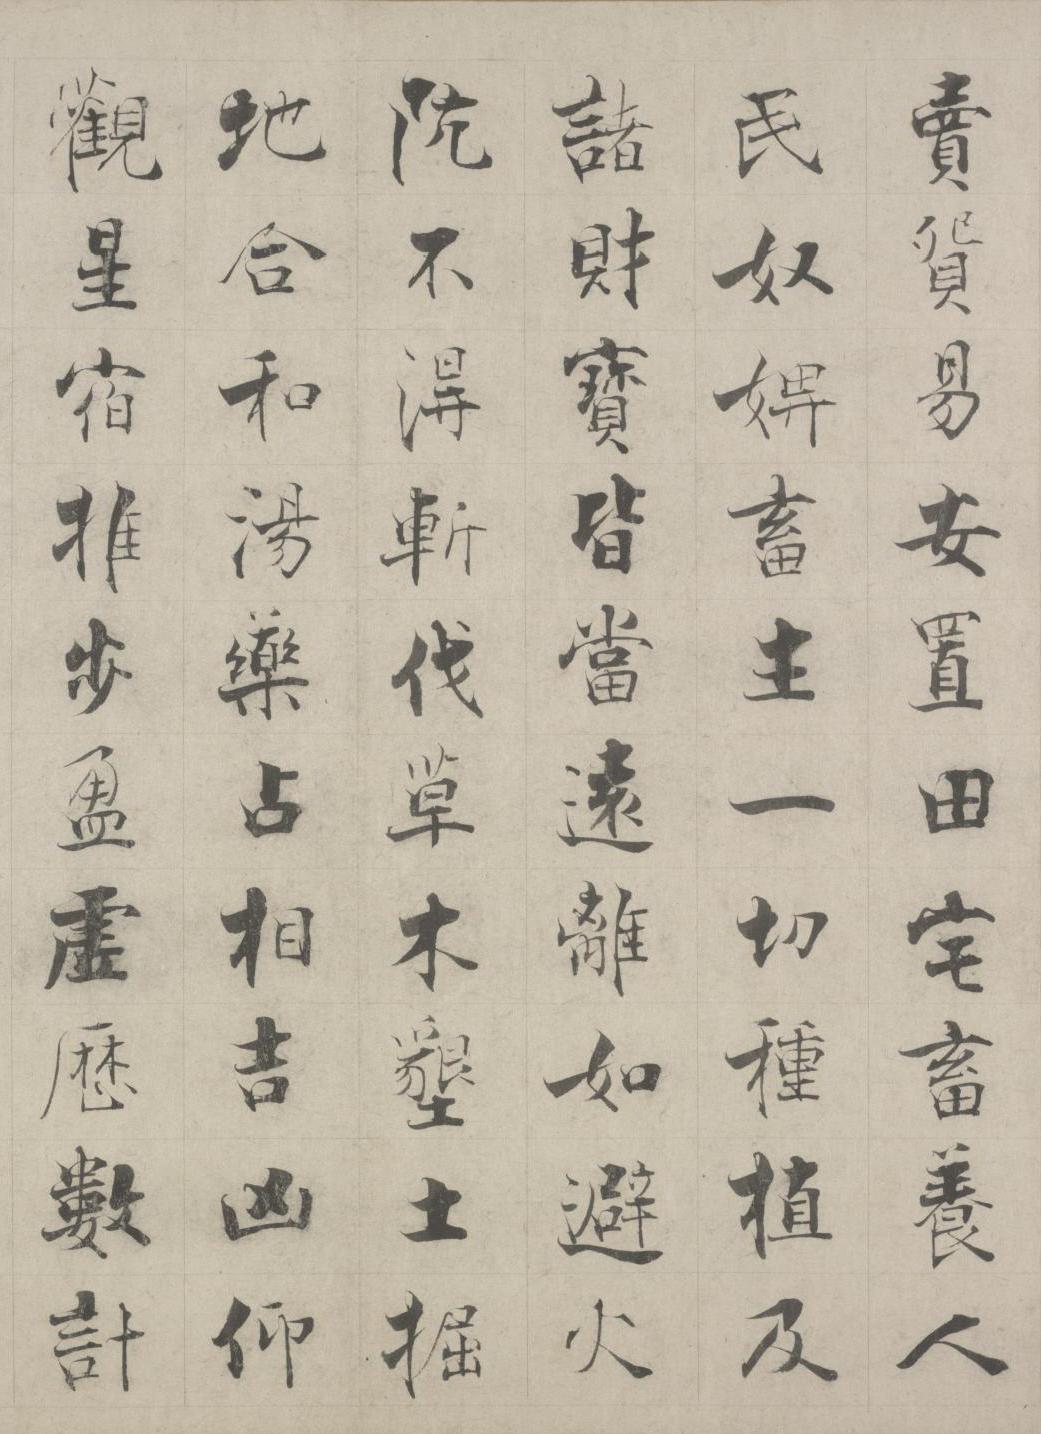 賣貿易安置田宅畜養人
民奴婢畜主一切種植及
諸財寶皆當遠離如避火
阬不得斬伐草木墾土掘
地合和湯藥占相吉凶仰
觀星宿推步盈虛歷數計